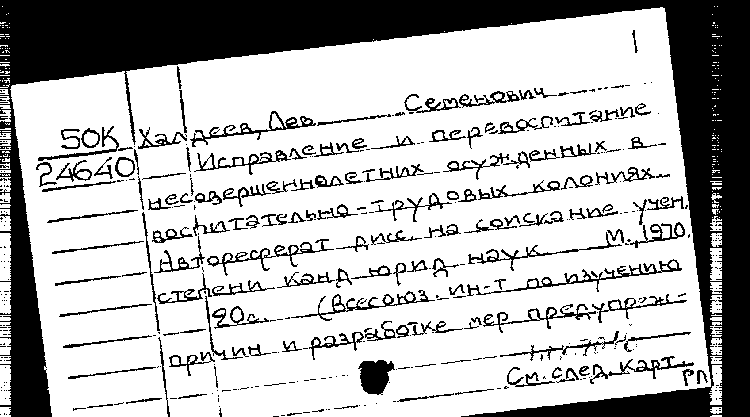 1
50К
24640
Халдеев, Лев Семенович
Исправление и перевоспитание
несовершеннолетних осужденных в
воспитательно-трудовых колониях.
Автореферат дисс. на соискание учен.
степени канд юрид наук М., 1970.
20с. (Всесоюз. ин-т по изучению
причин и разработке мер предупреж-
См. след. карт.
РП